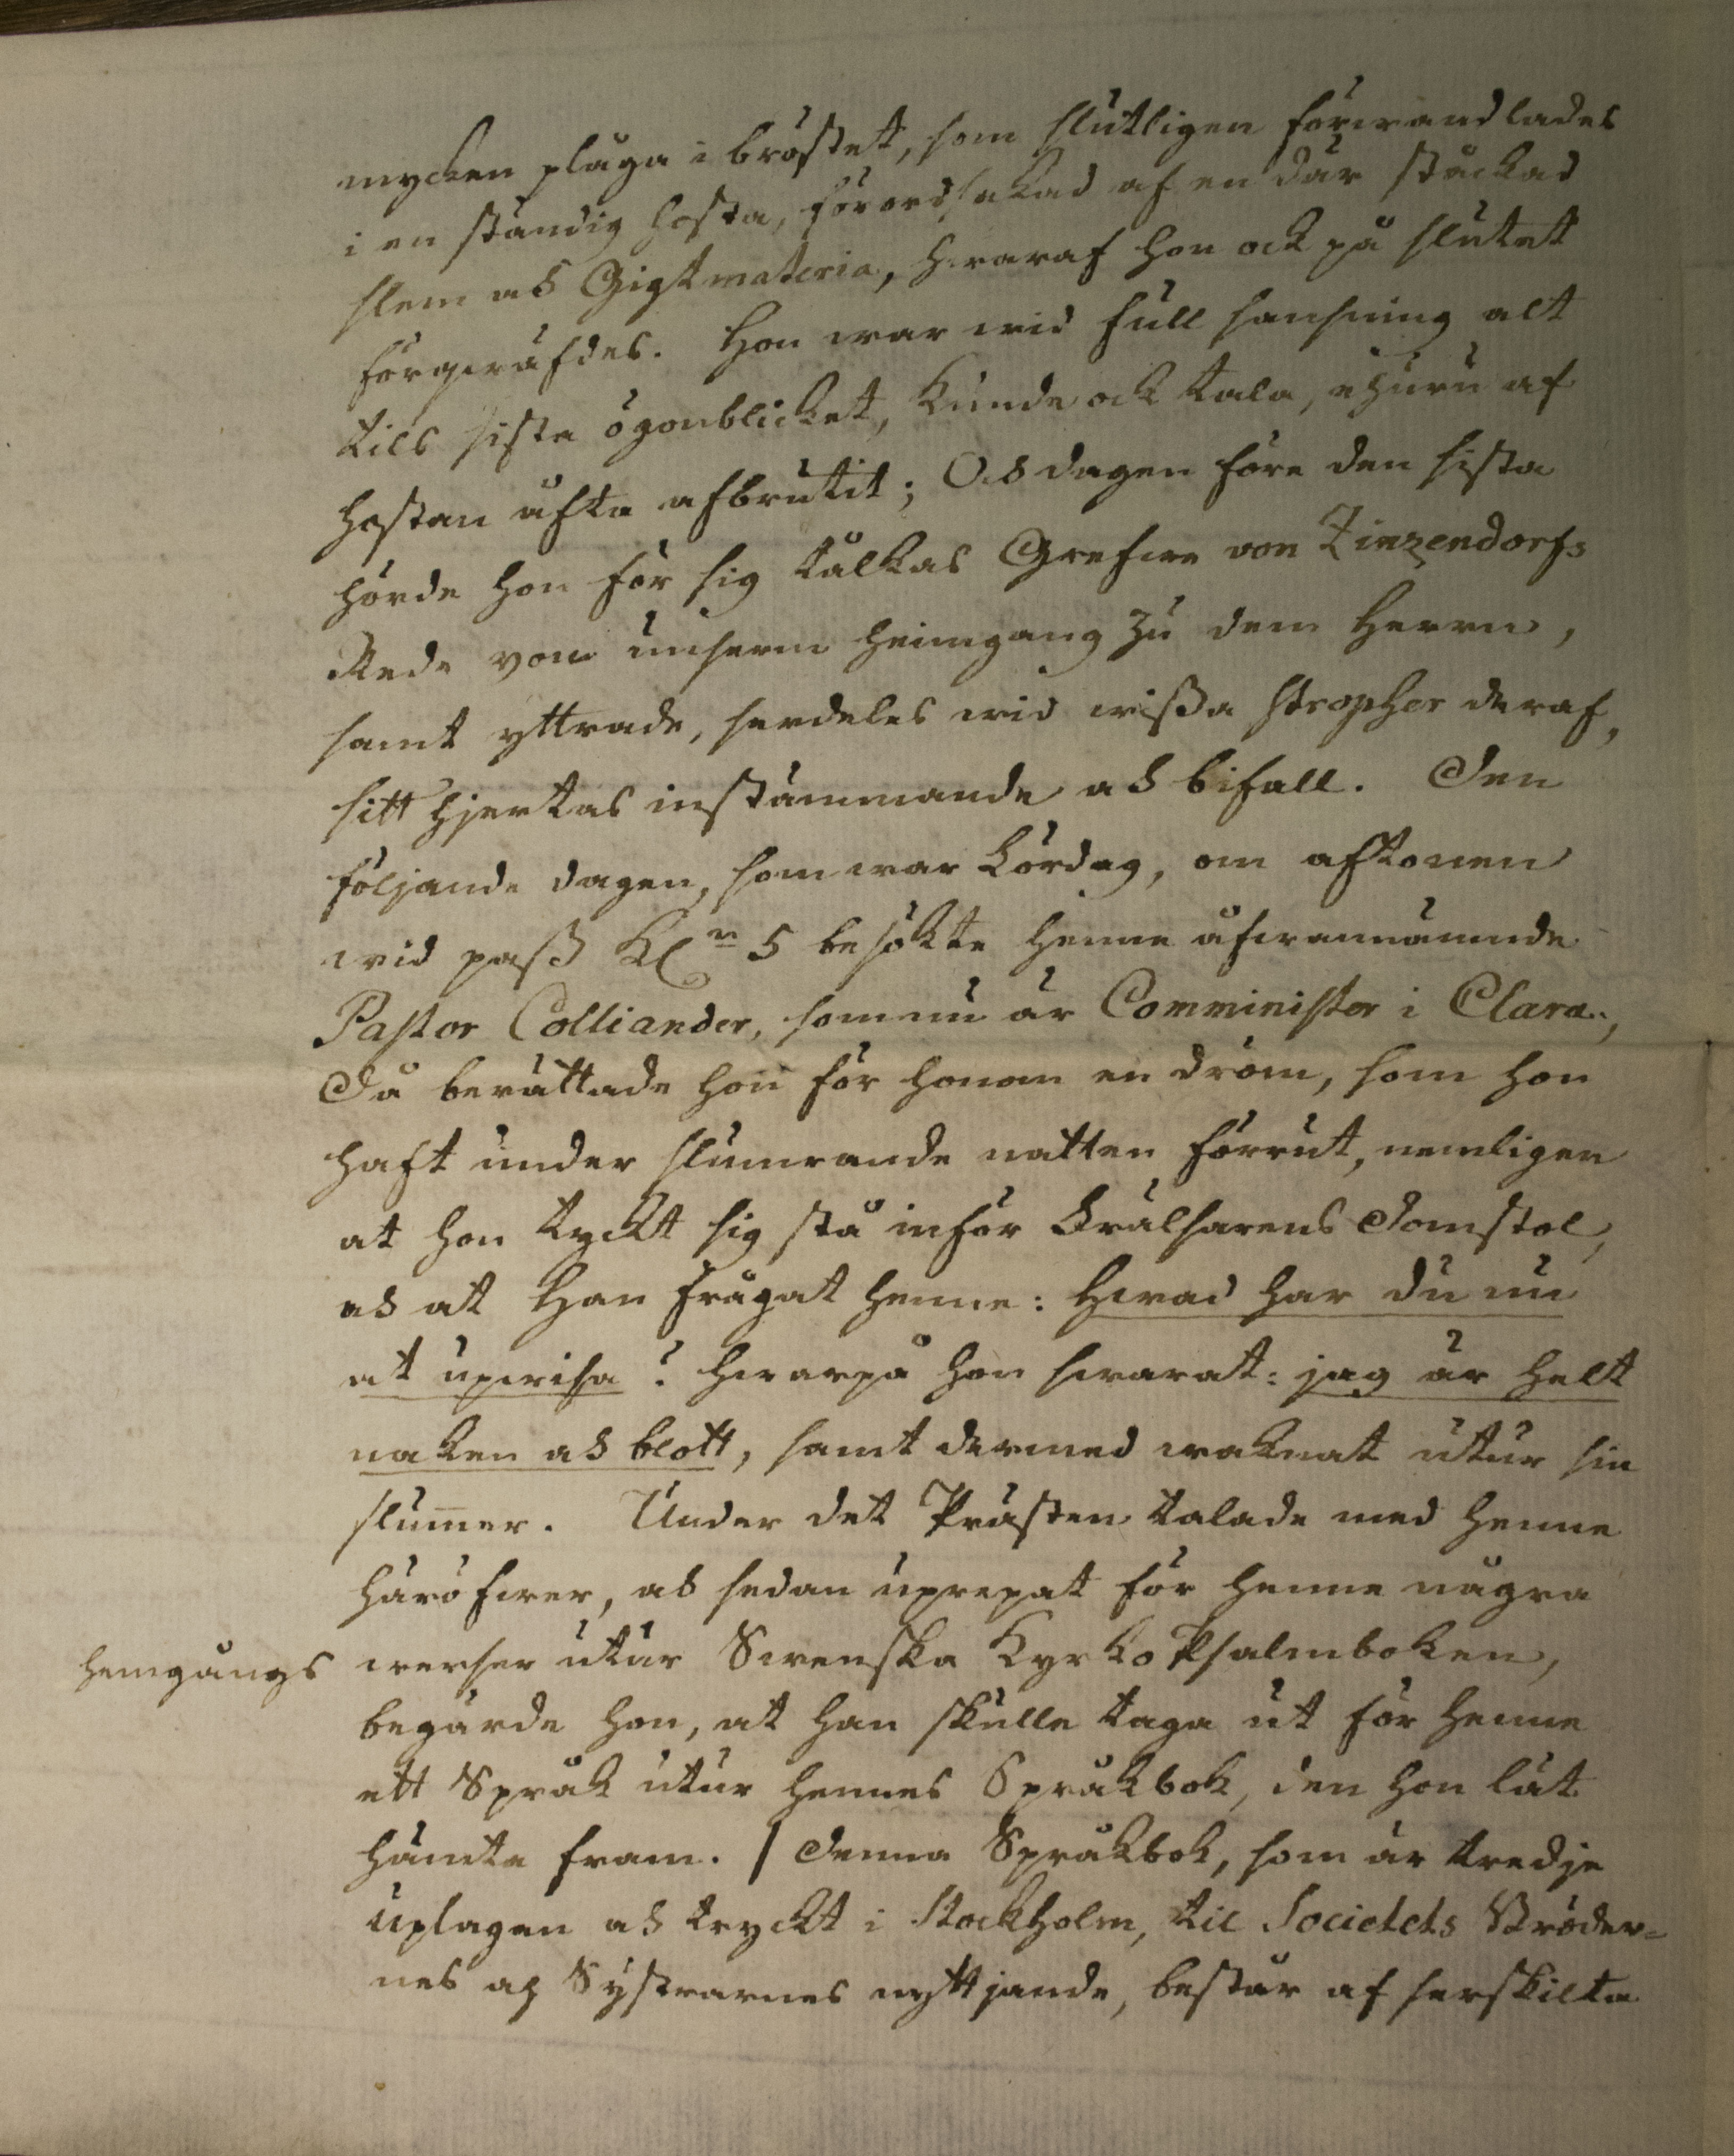 mycken plåga i bröstet, som slutligen förwandlades
i en ständig hosta, förordsakad af en där stockad
slem och Gigtmateria, hwaraf hon ock på slutet
förqwäfdes. Hon war wid full sansning alt
tils sista ögonblicket, kunde ock tala, ehuru af
hostan ofta afbrutit; Och dagen före den sista
hörde hon för sig tolkas Grefwe von Zinzendorfs
Rede von unserm heimgang zu dem Herrn,
samt yttrade, serdeles wid wißa stropher deraf,
sitt hjertas instämmande och bifall. Den
följande dagen, som war Lördag, om aftonen
wid paß Kl:n 5 besökte henne ofwannämnde
Pastor Colliander, som nu är Comminister i Clara.,
Då berättade hon för honom en dröm, som hon
haft under slumrande natten förrut, nemligen
at hon tyckt sig stå inför Frälsarens Domstol,
och at Han frågat henne: Hwad har du nu
at upwisa? hwarpå hon swarat: jag är helt
naken och blott, samt dermed waknat utur sin
slum̅er. Under det Prästen talade med henne
häröfwer, och sedan uprepat för henne några
hemgångs werser utur Swenska KyrkoPsalmboken,
begärde hon, at han skulle taga ut för henne
ett Språk utur hennes Språkbok, den hon låt
hämta fram. / Denna Språkbok, som är tredje
uplagan och tryckt i Stockholm, til Societets Bröder=
nes och Systrarnes nyttjande, består af serskilta